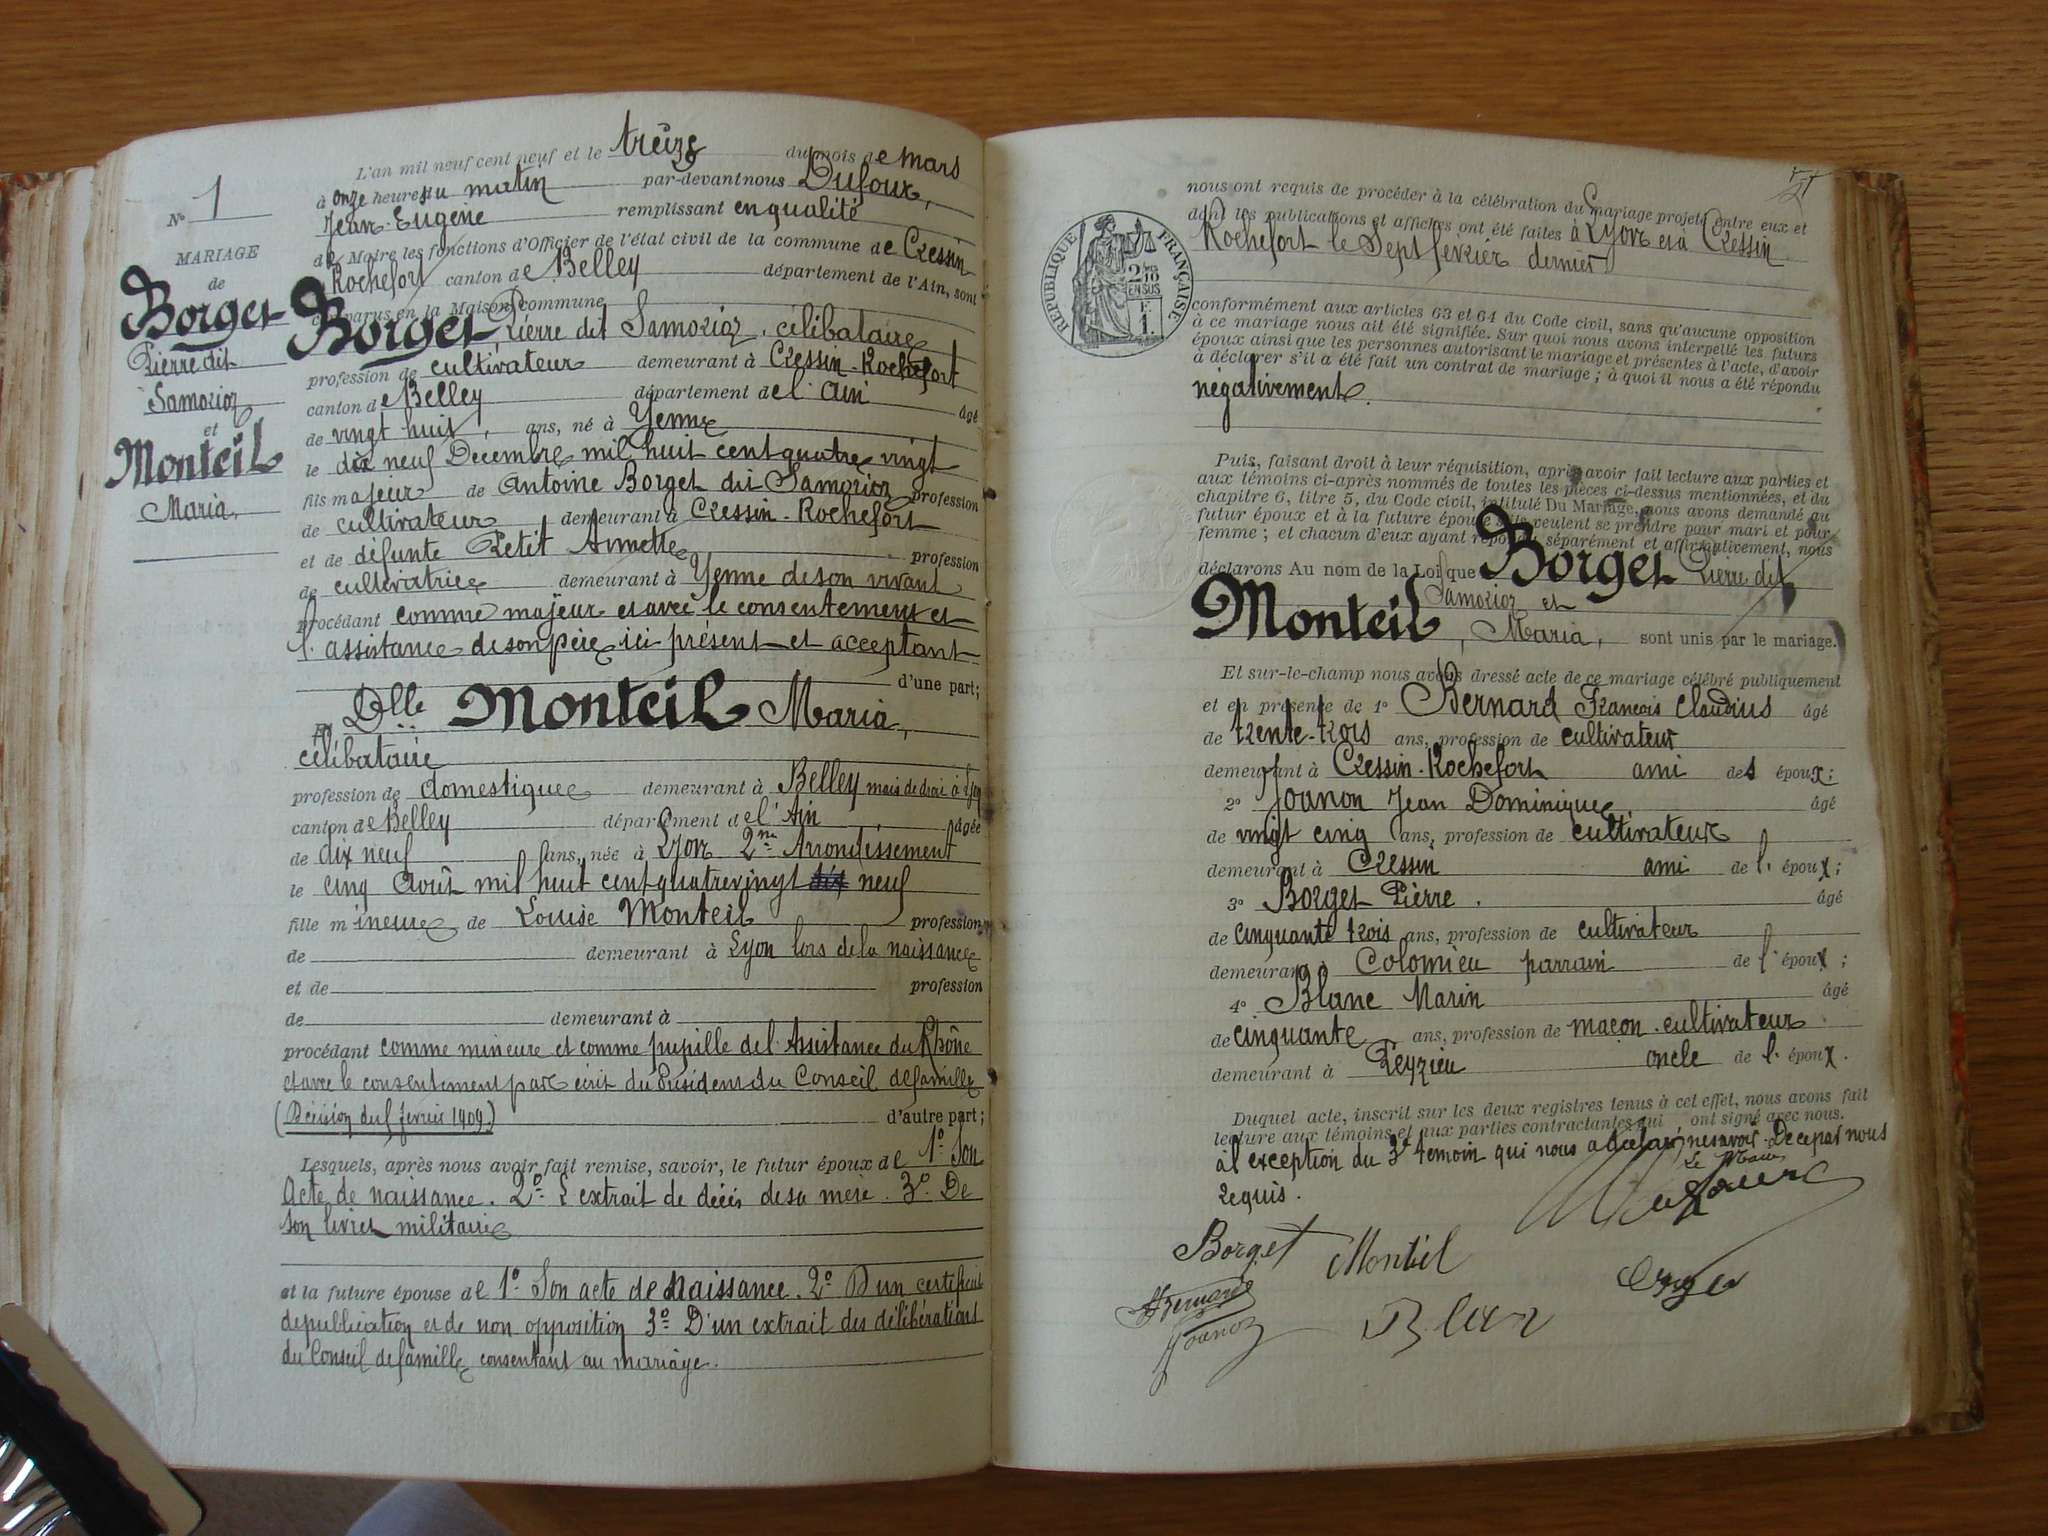 N° 1
MARIAGE
de
Borget
Pierre dit
Samorioz
et
Monteil
Maria,
L'an mil neuf cent neuf et le treize du mois de mars
à onze heures du matin par-devant nous Dufour,
Jean-Eugène remplissant en qualité
de Maire les fonctions d'Officier de l'état civil de la commune de Cressin
Rochefort canton de Belley département de l'Ain, sont
comparus en la Maison commune
Borget Pierre dit Samorioz, célibataire
profession de cultivateur demeurant à Cressin-Rochefort
canton de Belley département de l'Ain âgé
de vingt huit, ans, né à Yenne
le dix neuf Decembre mil huit cent quatre vingt
fils majeur de Antoine Borget dit Samorioz profession
de cultivateur demeurant à Cressin-Rochefort
et de défunte Petit Annette profession
de cultivatrice demeurant à Yenne de son vivant
procédant comme majeur et avec le consentement et
l'assistance de son père ici présent et acceptant
d'une part;
Et Dlle Monteil Maria,
célibataire
profession de domestique demeurant à Belley mais de droit à Lyon
canton de Belley département de l'Ain âgée
de dix neuf ans, née à Lyon 2me Arrondissement
le cinq Août mil huit cent quatre vingt dix neuf
fille mineure de Louise Monteil profession
de demeurant à Lyon lors de la naissance
et de profession
de demeurant à
procédant comme mineure et comme pupille de l'Assistance du Rhône
et avec le consentement par écrit du Président du Conseil de famille
(Décision du 5 fevrier 1909.) d'autre part;
Lesquels, après nous avoir fait remise, savoir, le futur époux de 1° Son
Acte de naissance. 2° L'extrait de décès de sa mère. 3° De
son livret militaire
et la future épouse de 1° Son acte de naissance. 2° D'un certificat
de publication et de non opposition 3° D'un extrait des délibérations
du Conseil de famille consentant au mariage.
RÉPUBLIQUE FRANÇAISE
2/10
EN SUS
F.
1.
nous ont requis de procéder à la célébration du mariage projeté entre eux et
dont les publications et affiches ont été faites à Lyon et à Cressin
Rochefort le Sept fevrier dernier
conformément aux articles 63 et 64 du Code civil, sans qu'aucune opposition
à ce mariage nous ait été signifiée. Sur quoi nous avons interpellé les futurs
époux ainsi que les personnes autorisant le mariage et présentes à l'acte, d'avoir
à déclarer s'il a été fait un contrat de mariage; à quoi il nous a été répondu
négativement.
Puis, faisant droit à leur réquisition, après avoir fait lecture aux parties et
aux témoins ci-après nommés de toutes les pièces ci-dessus mentionnées, et du
chapitre 6, titre 5, du Code civil, intitulé Du Mariage, nous avons demandé au
futur époux et à la future épouse s'ils veulent se prendre pour mari et pour
femme; et chacun d'eux ayant répondu séparément et affirmativement, nous
déclarons Au nom de la Loi que Borget Pierre dit
Samorioz et
Monteil, Maria, sont unis par le mariage.
Et sur-le-champ nous avons dressé acte de ce mariage célébré publiquement
et en présence de 1° Bernard François Claudius âgé
de trente-trois ans, profession de cultivateur
demeurant à Cressin-Rochefort ami des époux;
2° Jounon Jean Dominique âgé
de vingt cinq ans, profession de cultivateur
demeurant à Cressin ami de l'époux;
3° Borget Pierre. âgé
de cinquante trois ans, profession de cultivateur
demeurant à Colomieu parrain de l'époux;
4° Blanc Marin âgé
de cinquante ans, profession de maçon-cultivateur
demeurant à Peyzieu oncle de l'époux.
Duquel acte, inscrit sur les deux registres tenus à cet effet, nous avons fait
lecture aux témoins et aux parties contractantes qui ont signé avec nous.
à l'exception du 3e temoin qui nous a déclaré ne savoir. De ce par nous
requis.
Le Maire
Dufour
Borget Monteil
Bernard
Jounon Blanc